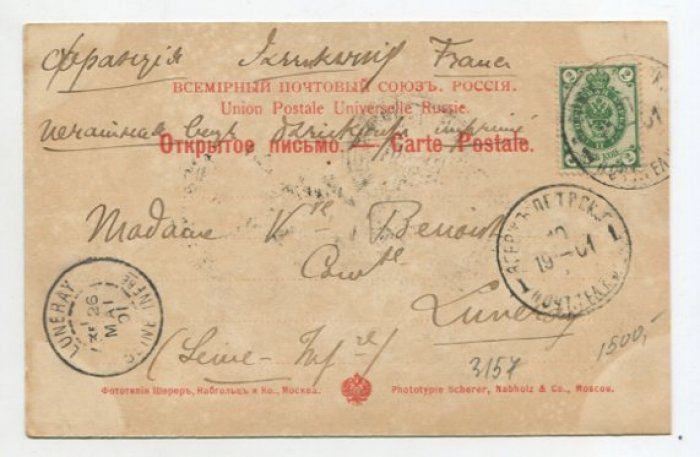 Франція France
ВСЕМІРНЫЙ ПОЧТОВЫЙ СОЮЗЪ. РОССІЯ.
Union Postale Universelle Russie.
печатная вещь imprimé
Открытое письмо. — Carte Postale.
Madame Vve Benoist
Luneray
(Seine-Infre)
LUNERAY
26
MAI
01
SEINE INFRE
19 01
3157
1500,-
Фототипія Шереръ, Набгольцъ и Ко., Москва.
Phototypie Scherer, Nabholz & Co., Moscow.